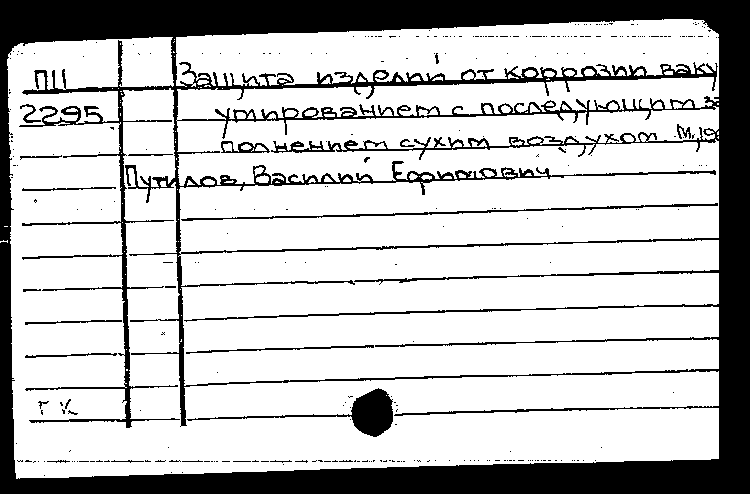 П11 Защита изделий от коррозии ваку
2295 умированием с последующим за
полнением сухим воздухом. М,19
Путилов, Василий Ефимович.
Г К